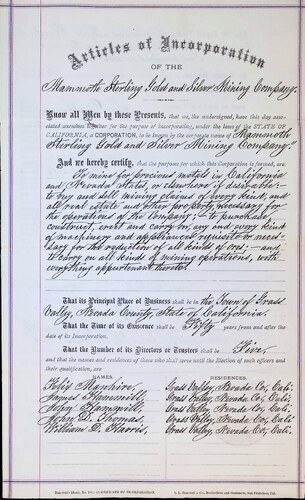 Articles of Incorporation
OF THE
Mammoth Sterling Gold and Silver Mining Company.
Know all Men by these Presents, that we, the undersigned, have this day
associated ourselves together for the purpose of incorporating, under the laws of the STATE OF
CALIFORNIA, a CORPORATION, to be known by the corporate name of Mammoth
Sterling Gold and Silver Mining Company.
And we hereby certify, that the purposes for which this Corporation is formed, are
To mine for precious metals in California
and Nevada States, or elsewhere if desirable:- 
to buy and sell mining claims of every kind, and
all real estate and other property necessary for
the operations of the Company:- to purchase,
construct, erect and carry on, any and every kind
of machinery and appliances requisite or neces-
sary for the reduction of all kinds of ore:- and
to carry on all kinds of mining operations, with
everything appurtenant thereto.
That its Principal Place of Business shall be in the Town of Grass
Valley, Nevada County, State of California.
That the Time of its Existence shall be Fifty years from and after the
date of its Incorporation.
That the Number of its Directors or Trustees shall be Five,
and that the names and residences of those who shall serve until the Election of such officers and
their qualification, are
NAMES. RESIDENCES.
Grass Valley, Nevada Co, Cali.
James Grass Valley, Nevada Co, Cali.
John Grass Valley, Nevada Co, Cali.
John D. Thomas, Grass Valley, Nevada Co, Cali.
William D. Harris, Grass Valley, Nevada Co, Cali.